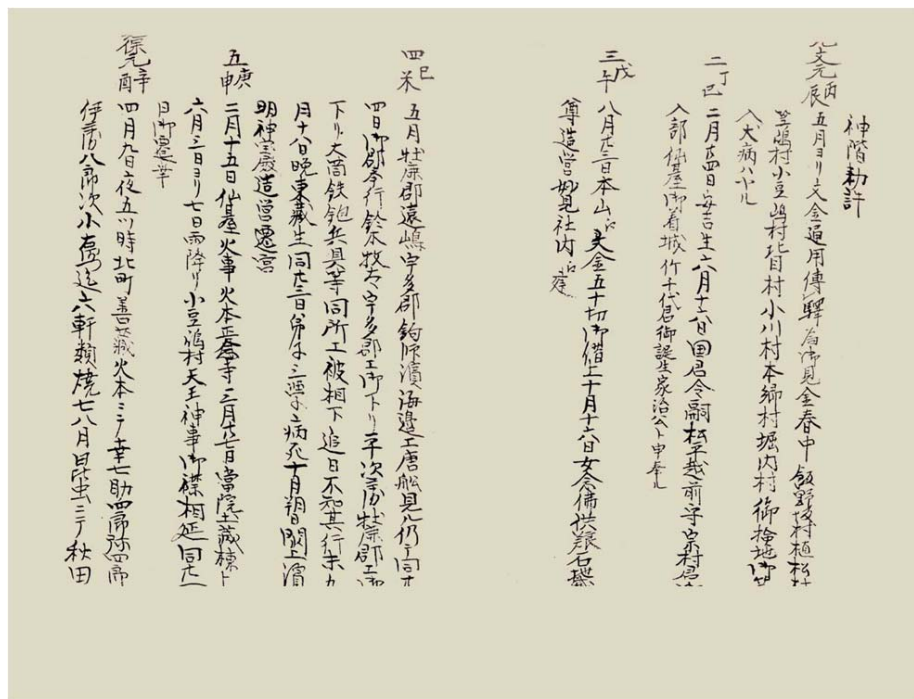 神階勅許
元文元 丙辰 五月ヨリ文金通用傳驛為御見金春中飯野坂村植松村
笠嶋村小豆嶋村北目村小川村本郷村堀内村御検地御
入犬病ハヤル
二 丁巳 二月十四日安吉生六月十六日國君令嗣松平越前守宗村君
入部仙䑓御着城竹千代君御誕生家治公ト申奉ル
三 戊午 八月廿三日本山江文金五十切御借上十月十六日女念佛供銀石
尊造営妙見社内江建
四 己未 五月牡鹿郡遠嶋宇多郡釣師濱海邊工唐舩見ル仍テ同廿
四日御郡奉行鈴木 宇多郡工御下リ 牡鹿郡工御
下リ大筒鉄炮兵具等同所工被相下追日不知其行末九
月十八日晩東藏生同廿三日 病死十月朔日閖上濱
明神宮 造営遷宮
五 庚申 二月十五日仙䑓火事火本 寺三月廿七日常院土藏棟上
六月三日ヨリ七日雨降リ小豆嶋村天王神事御襍相延同廿一
日御遷
辛酉 四月九日夜五ツ時北町善藏火本ニテ幸七助四郎弥四郎
伊 八郎次小 迄六軒類焼七八月昆虫ニテ秋田